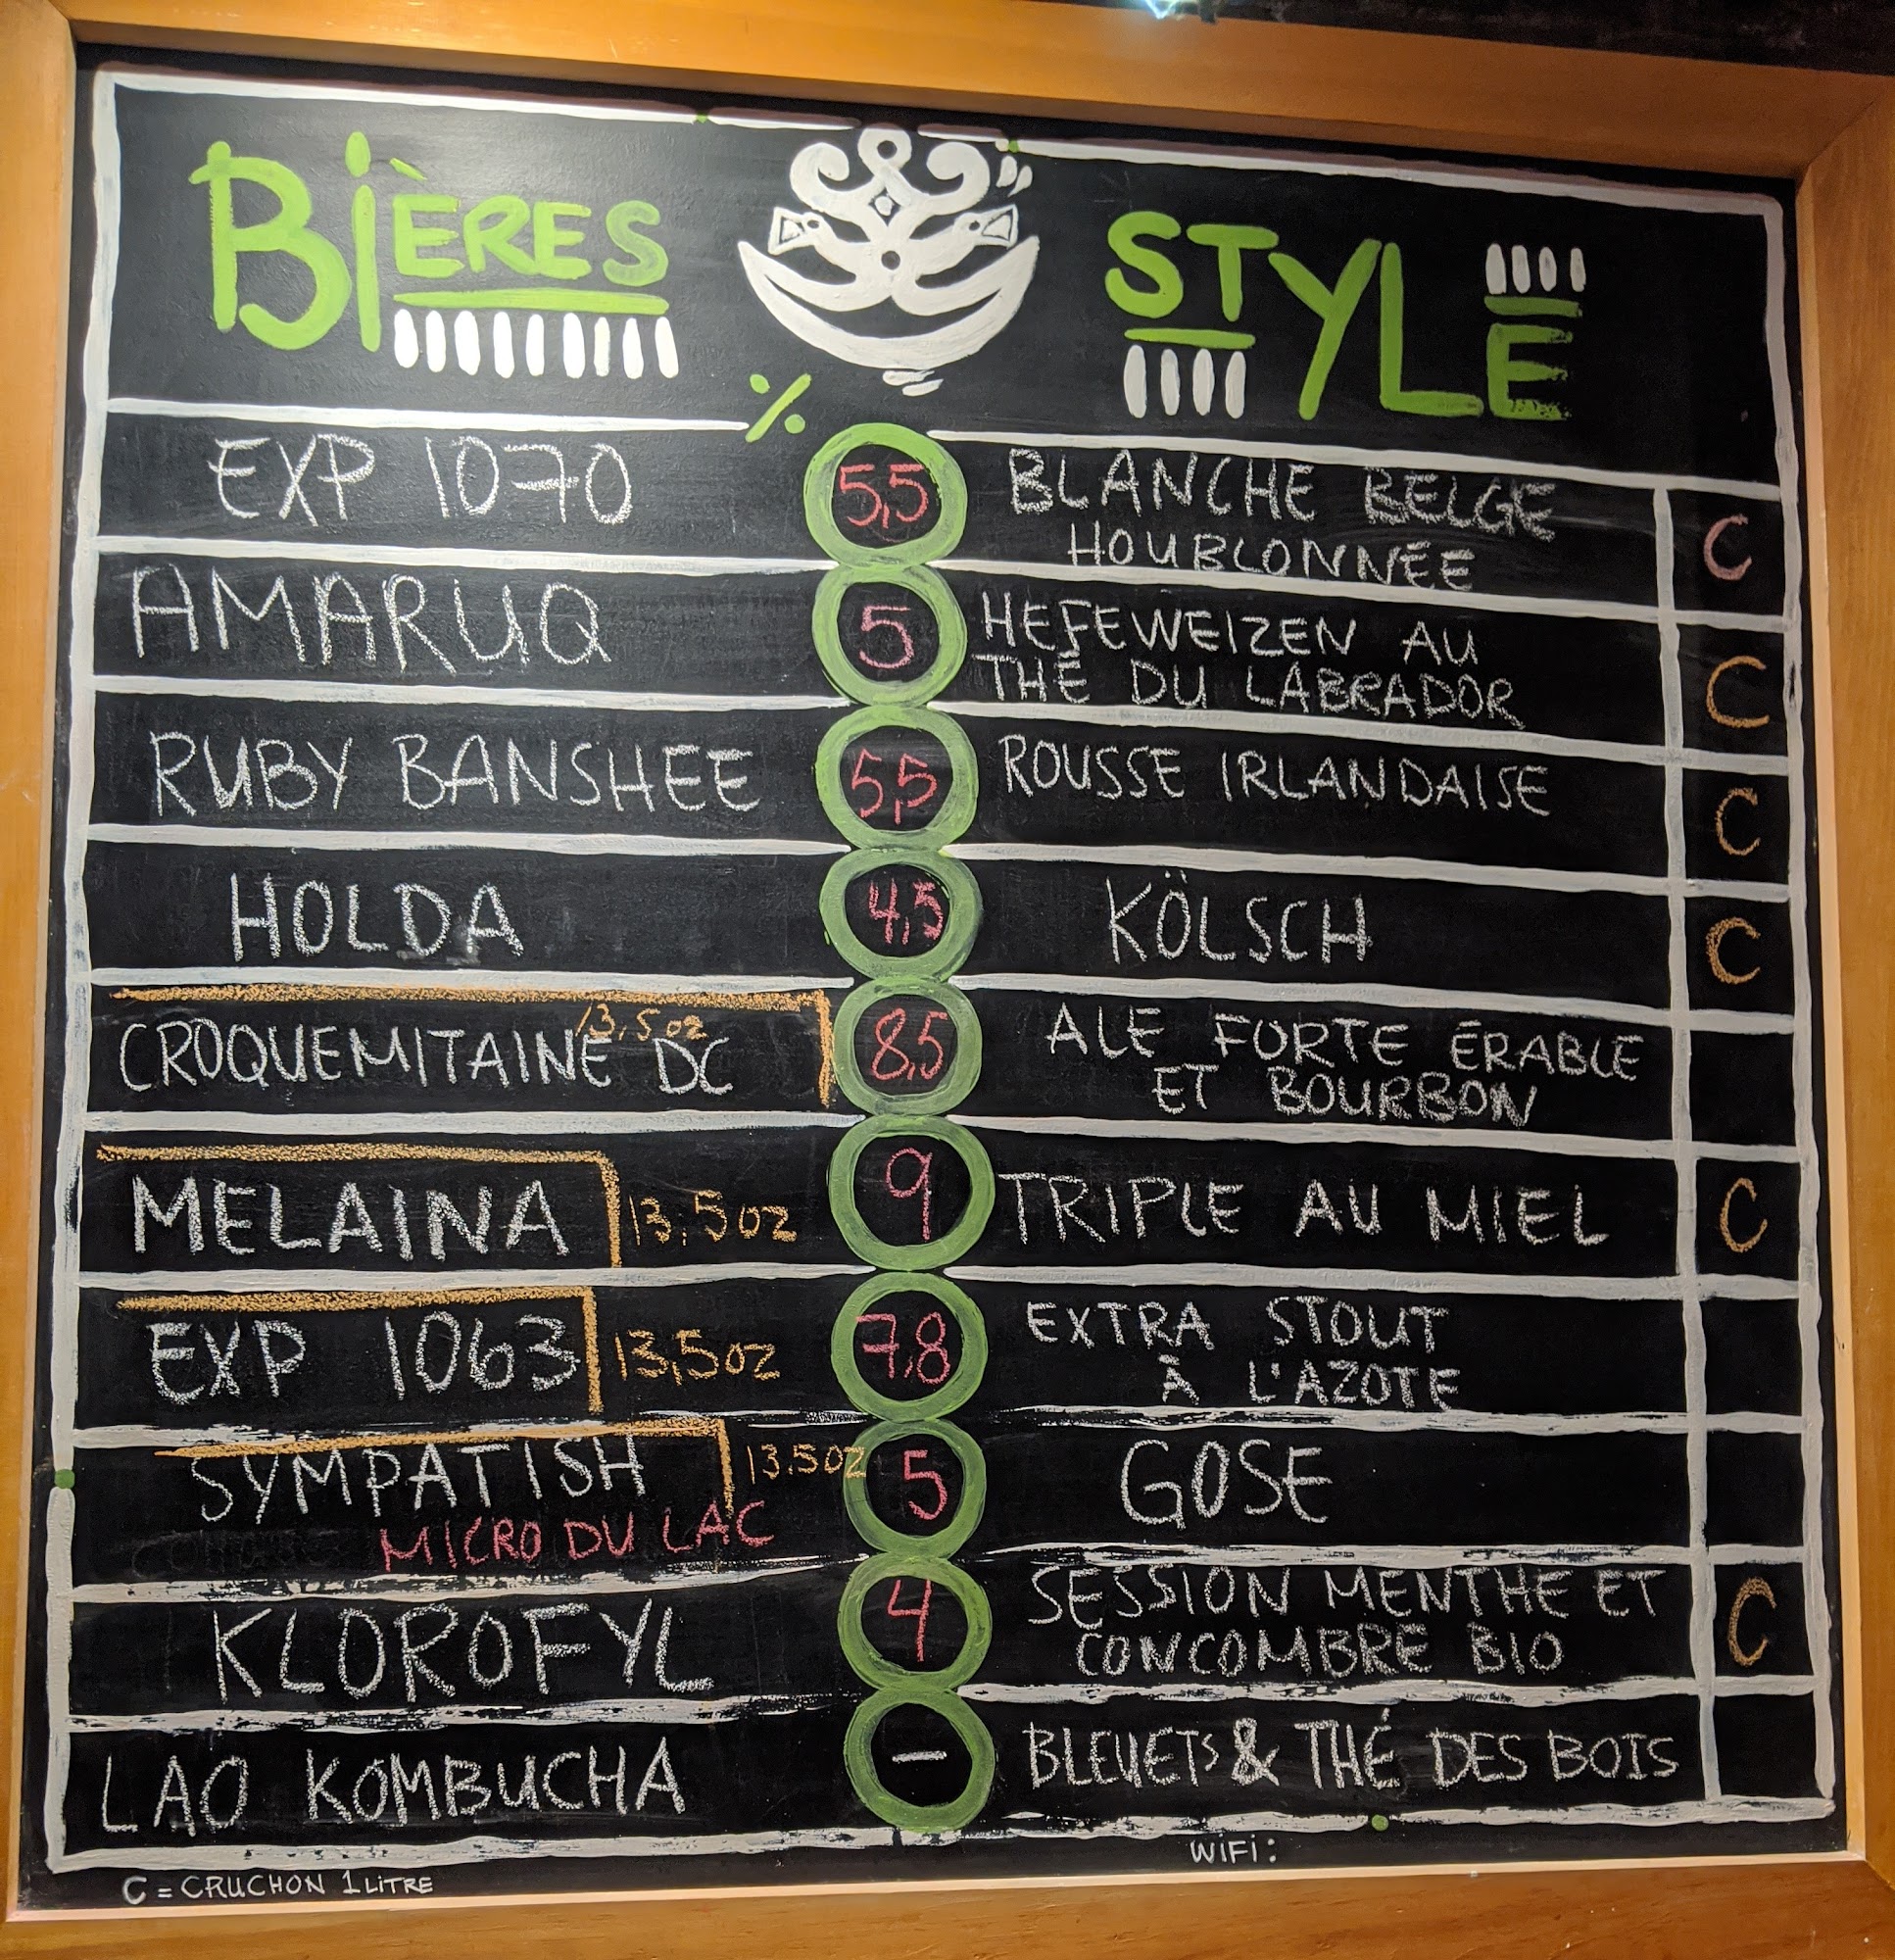 BIÈRES
STYLE
%
EXP 1070
5,5
BLANCHE BELGE
HOUBLONNÉE
C
AMARUQ
5
HEFEWEIZEN AU
THÉ DU LABRADOR
C
RUBY BANSHEE
5,5
ROUSSE IRLANDAISE
C
HOLDA
4,5
KÖLSCH
C
13,5oz
CROQUEMITAINE DC
8,5
ALE FORTE ÉRABLE
ET BOURBON
MELAINA
13,5oz
9
TRIPLE AU MIEL
C
EXP 1063
13,5oz
7,8
EXTRA STOUT
À L'AZOTE
SYMPATISH
13.5oz
MICRO DU LAC
5
GOSE
KLOROFYL
4
SESSION MENTHE ET
CONCOMBRE BIO
C
LAO KOMBUCHA
–
BLEUETS & THÉ DES BOIS
WIFI :
C = CRUCHON 1 LITRE